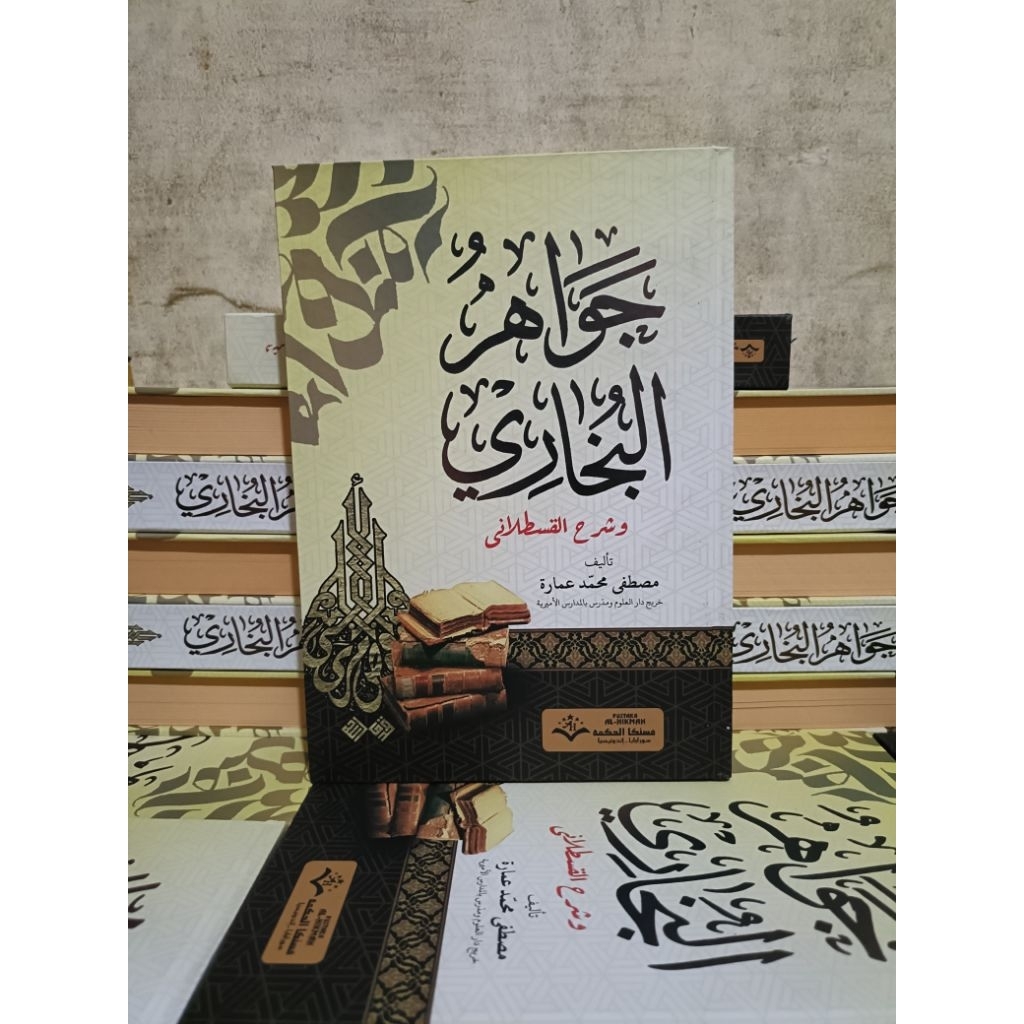 جَوَاهِرُ
البُخَارِي
وشرح القسطلانى
تأليف
مصطفى محمّد عمارة
خريج دار العلوم ومدرس بالمدارس الأميرية
PUSTAKA
AL-HIKMAH
فستكا الحكمه
سورابايا - إندونيسيا
جَوَاهِرُ البُخَارِي
جَوَاهِرُ البُخَارِي
جَوَاهِرُ البُخَارِي
جَوَاهِرُ البُخَارِي
جَوَاهِرُ
البُخَارِي
وشرح القسطلانى
تأليف
مصطفى محمّد عمارة
خريج دار العلوم ومدرس بالمدارس الأميرية
PUSTAKA
AL-HIKMAH
فستكا الحكمه